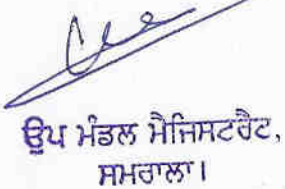 ਉਪ ਮੰਡਲ ਮੈਜਿਸਟਰੇਟ,
ਸਮਰਾਲਾ।